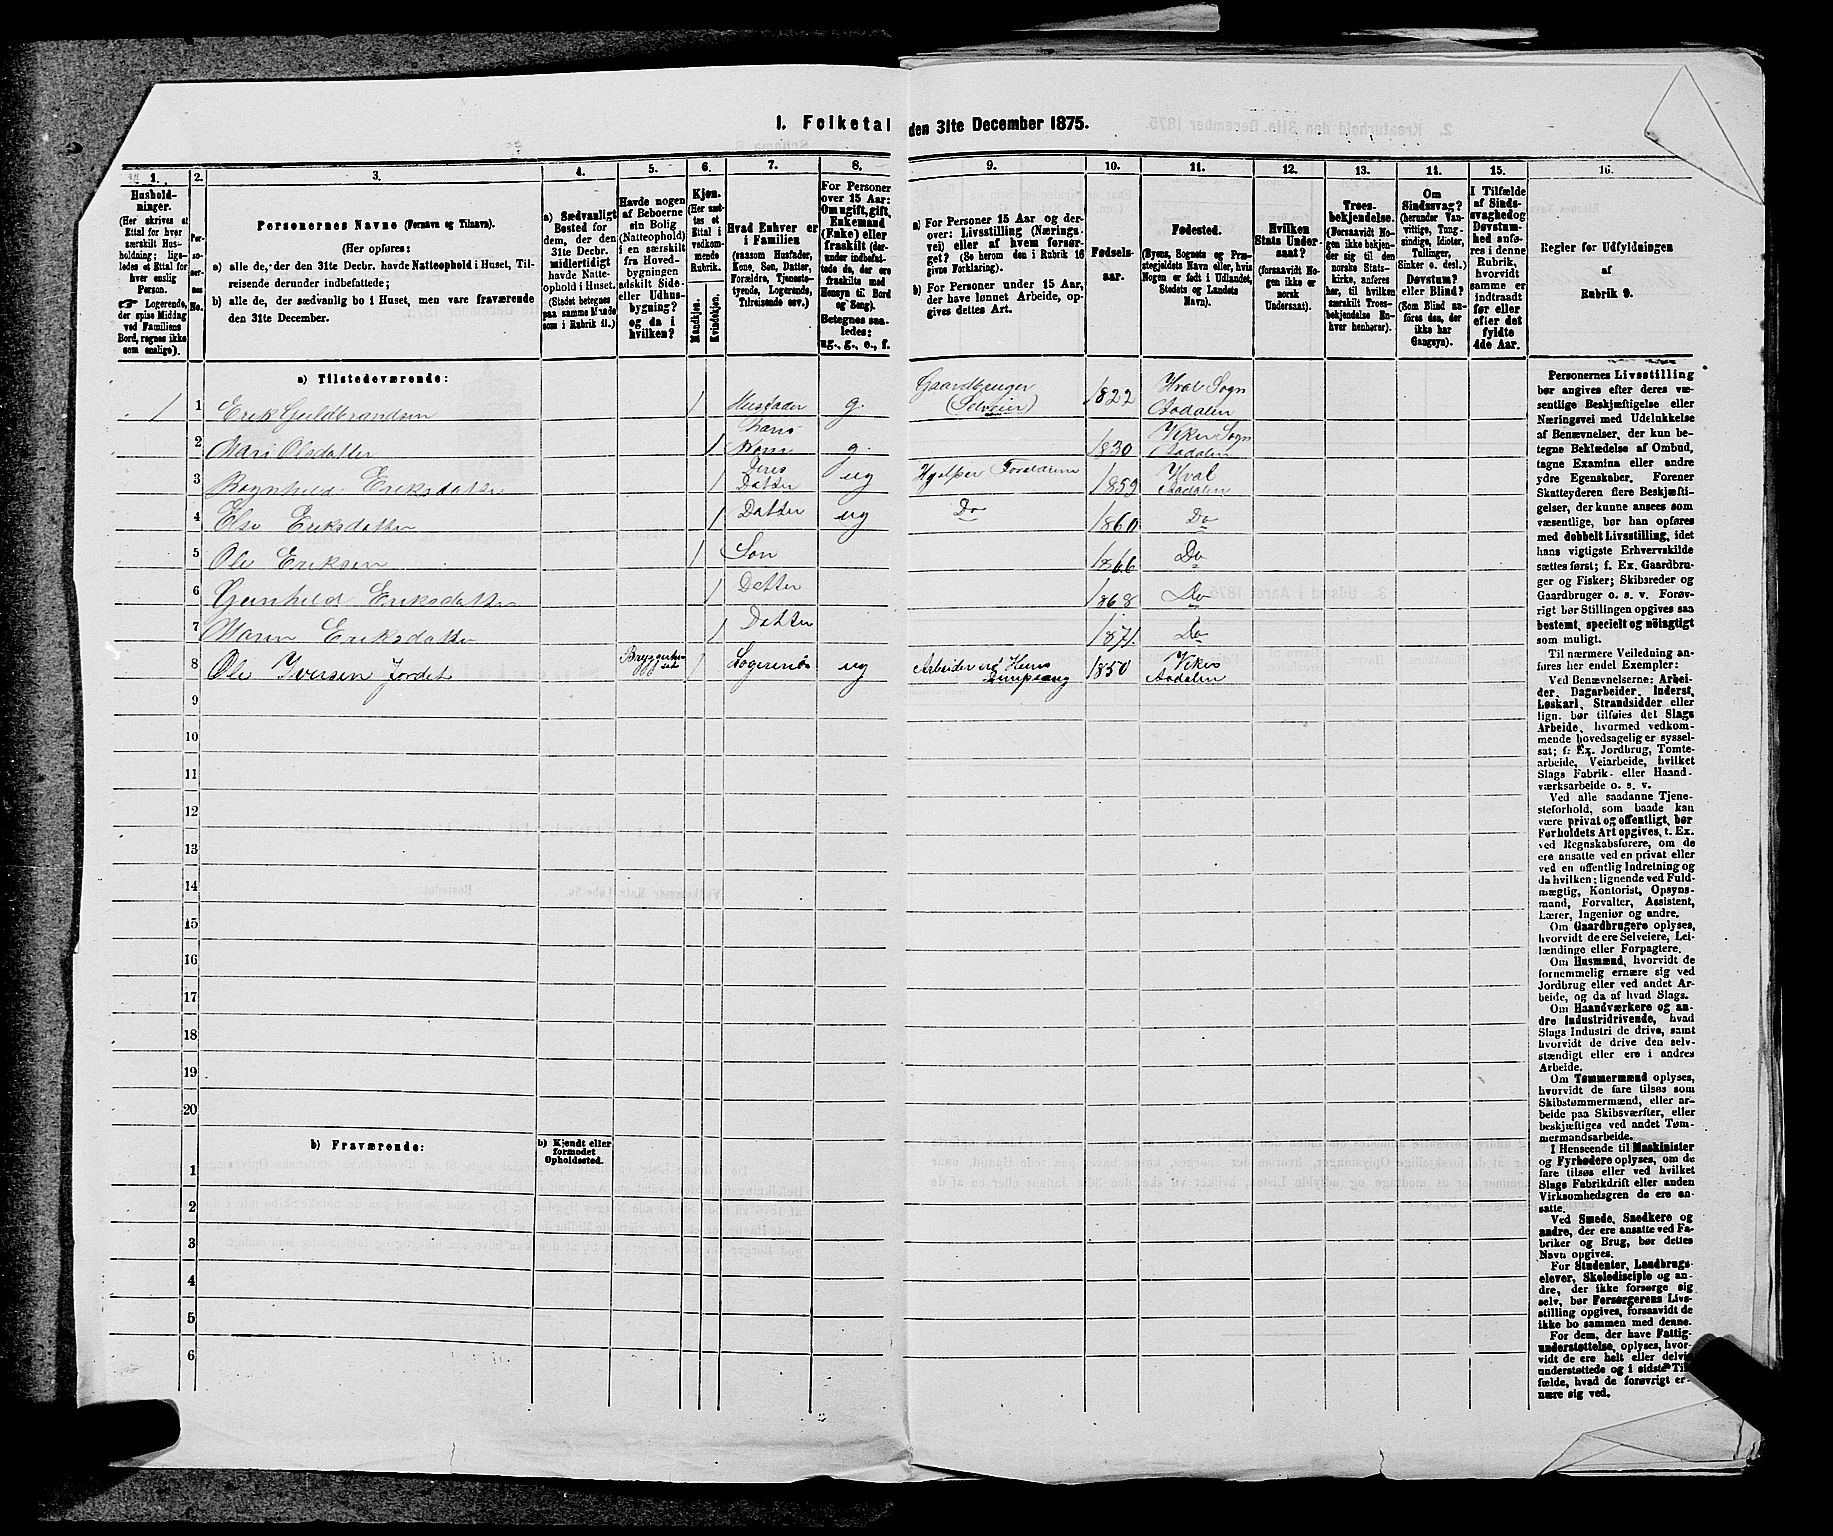 1. Folketal den 31te December 1875.
1.
2.
3.
4.
5.
6.
7.
8.
9.
10.
11.
12.
13.
14.
15.
16.
Husholdninger.
(Her skrives et
Ettal for hver
særskilt Husholdning;
ligeledes et Ettal for
hver enslig
Person.
☞ Logerende,
der spise Middag
ved Familiens
Bord, regnes ikke
som enslige).
Personernes No.
Personernes Navne (Fornavn og Tilnavn).
(Her opføres:
a) alle de, der den 31te Decbr. havde Natteophold i Huset, Tilreisende derunder indbefattede;
b) alle de, der sædvanlig bo i Huset, men vare fraværende
den 31te December.
a) Sædvanligt
Bosted for
dem, der den
31te Decbr.
midlertidigt
havde Natteophold
i Huset.
(Stedet betegnes
paa samme Maade
som i Rubrik 11.)
Havde nogen
af Beboerne
sin Bolig
(Natteophold)
i en særskilt
fra Hovedbygningen
adskilt Side-
eller Udhusbygning?
og da i
hvilken?
Kjøn.
(Her sættes et
Ettal i
vedkommende
Rubrik.
Mandkjøn.
Kvindekjøn.
Hvad Enhver er
i Familien
(saasom Husfader,
Kone, Søn, Datter,
Forældre, Tjenestetyende,
Logerende,
Tilreisende osv.)
For Personer
over 15 Aar:
Om ugift, gift,
Enkemand
(Enke) eller
fraskilt (derunder
indbefattede
de, der ere
fraskilte med
Hensyn til Bord
og Seng).
Betegnes saaledes:
ug., g., e., f.
a) For Personer 15 Aar og derover:
Livsstilling (Næringsvei)
eller af hvem forsørget?
(Se herom den i Rubrik 16
givne Forklaring).
b) For Personer under 15 Aar,
der have lønnet Arbeide, opgives
dettes Art.
Fødselsaar.
Fødested.
(Byens, Sognets og Præstegjeldets
Navn eller, hvis
Nogen er født i Udlandet,
Stedets og Landets
Navn).
Hvilken
Stats Undersaat?
(forsaavidt Nogen
ikke er
norsk
Undersaat).
Troesbekjendelse.
(Forsaavidt Nogen
ikke bekjender
sig til den
norske Statskirke,
anføres
her, til hvilken
særskilt Troesbekjendelse
Enhver henhører).
Om
Sindssvag?
(herunder Vanvittige,
Tungsindige,
Idioter,
Tullinger,
Sinker o. desl.)
Døvstum?
eller Blind?
(Som Blind anføres
den, der
ikke har
Gangsyn).
I Tilfælde
af Sindssvaghed
og
Døvstumhed
anføres
i denne
Rubrik,
hvorvidt
samme er
indtraadt
før eller
efter det
fyldte
4de Aar.
Regler for Udfyldningen
af
Rubrik 9.
a) Tilstedeværende:
1 1 Erik Guldbrandsen 1 Husfader g. Gaardbruger (Selveier) 1822 Hval Sogn Aadalen
2 Mari Olsdatter 1 hans Kone g. 1830 Viker Sogn Aadalen
3 Ragnhild Eriksdatter 1 Deres Datter ug Hjelper Forældrene 1853 Hval Aadalen
4 Else Eriksdatter 1 Datter ug Do 1860 Do
5 Ole Eriksen 1 Søn 1866 Do
6 Gunhild Eriksdatter 1 Datter 1868 Do
7 Maren Eriksdatter 1 Datter 1871. Do
8 Ole Iversen Jordet 1 Logerende ug 1850 Viker Aadalen
9
10
11
12
13
14
15
16
17
18
19
20
b) Fraværende:
b) Kjendt eller
formodet
Opholdssted.
1
2
3
4
5
6
Personernes Livsstilling
bør angives efter deres væsentlige
Beskjæftigelse eller
Næringsvei med Udelukkelse
af Benævnelser, der kun betegne
Beklædelse af Ombud,
tagne Examina eller andre
ydre Egenskaber. Forener
Skatteyderen flere Beskjæftigelser,
der kunne ansees som
væsentlige, bør han opføres
med dobbelt Livsstilling, idet
hans vigtigste Erhvervskilde
sættes først; f. Ex. Gaardbruger
og Fisker; Skibsreder og
Gaardbruger o. s. v. Forøvrigt
bør Stillingen opgives saa
bestemt, specielt og nøiagtigt
som muligt.
Til nærmere Veiledning anføres
her endel Exempler:
Ved Benævnelserne: Arbeider,
Dagarbeider, Inderst,
Løskarl, Strandsidder eller
lign. bør tilføies det Slags
Arbeide, hvormed vedkommende
hovedsagelig er sysselsat;
f. Ex. Jordbrug, Tomtearbeide,
Veiarbeide, hvilket
Slags Fabrik- eller Haandværksarbeide
o. s. v.
Ved alle saadanne Tjenesteforhold,
som baade kan
være privat og offentligt, bør
Forholdets Art opgives, t. Ex.
ved Regnskabsførere, om de
ere ansatte ved en privat eller
ved en offentlig Indretning og
da hvilken; lignende ved Fuldmægtig,
Kontorist, Opsynsmand,
Forvalter, Assistent,
Lærer, Ingeniør og andre.
Om Gaardbrugere oplyses,
hvorvidt de ere Selveiere, Leilændinge
eller Forpagtere.
Om Husmænd, hvorvidt de
fornemmelig ernære sig ved
Jordbrug eller ved andet Arbeide,
og da af hvad Slags.
Om Haandværkere og andre
Industridrivende, hvad
Slags Industri de drive, samt
hvorvidt de drive den selvstændigt
eller ere i andres
Arbeide.
Om Tømmermænd oplyses,
hvorvidt de fare tilsøs som
Skibstømmermænd, eller arbeide
paa Skibsværfter, eller
beskjæftiges ved andet Tømmermandsarbeide.
I Henseende til Maskinister
og Fyrbødere oplyses, om de
fare tilsøs eller ved hvilket
Slags Fabrikdrift eller anden
Virksomhedsgren de ere ansatte.
Ved Smede, Snedkere og
andre, der ere ansatte ved Fabriker
og Brug, bør dettes
Navn opgives.
For Studenter, Landbrugselever,
Skoledisciple og andre,
der ikke forsørge sig
selv, bør Forsørgerens Livsstilling
opgives, forsaavidt de
ikke bo sammen med denne.
For dem, der have Fattigunderstøttelse,
oplyses, hvorvidt
de ere helt eller delvis
understøttede og i sidste Tilfælde,
hvad de forøvrigt ernære
sig ved.